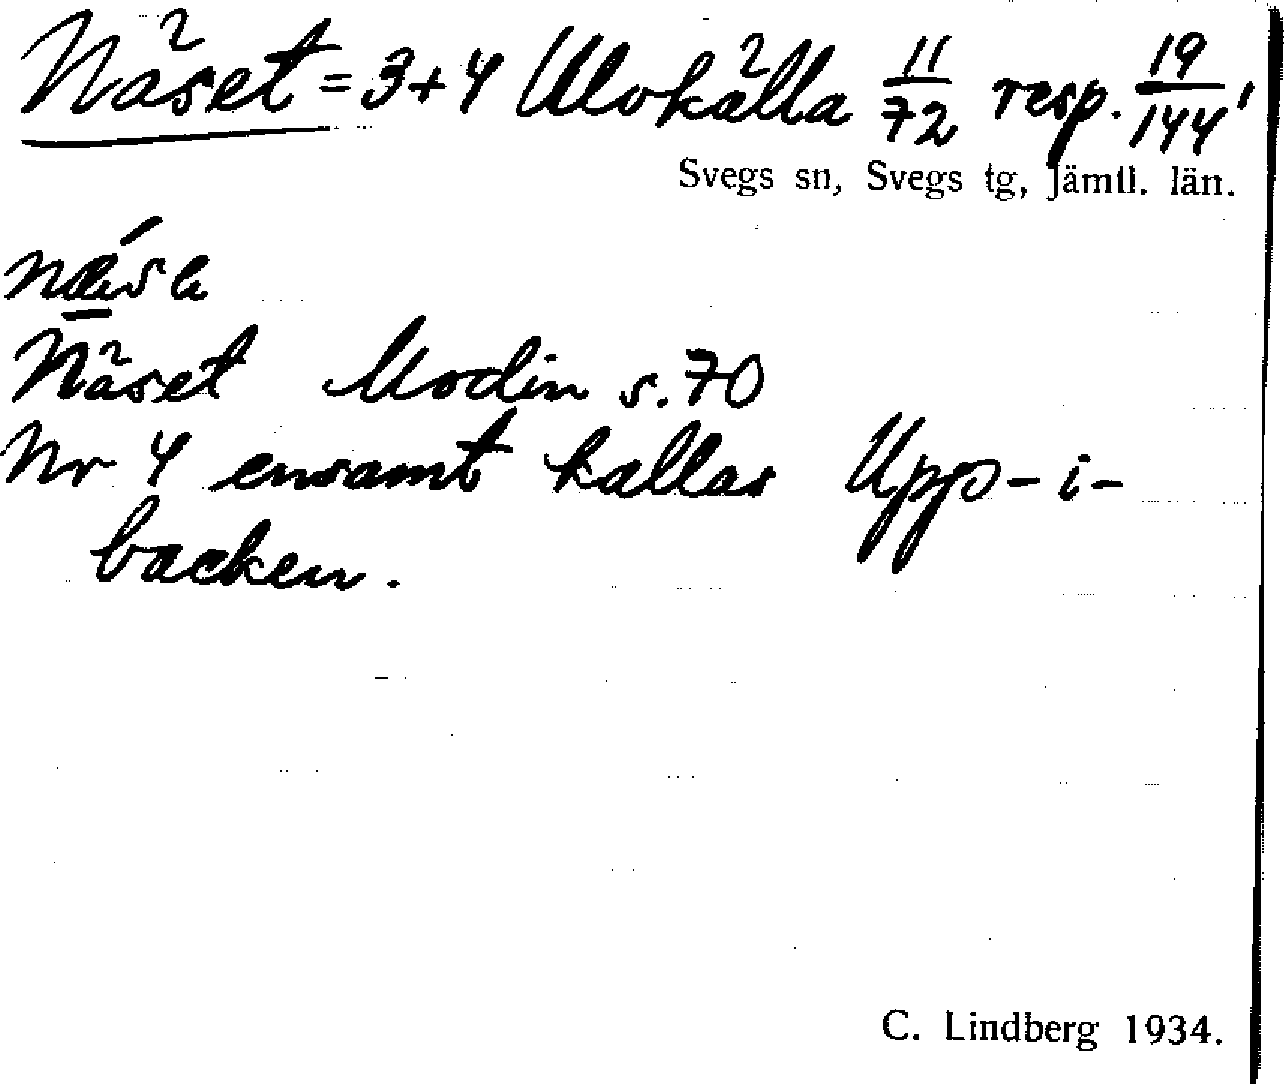 Näset = 3+4 Ulvkälla 11/72 resp. 19/144'
Svegs sn, Svegs tg, Jämtl. län.
Näset Modin s. 70
Nr 4 ensamt kallas Upp-i-
backen.
C. Lindberg 1934.